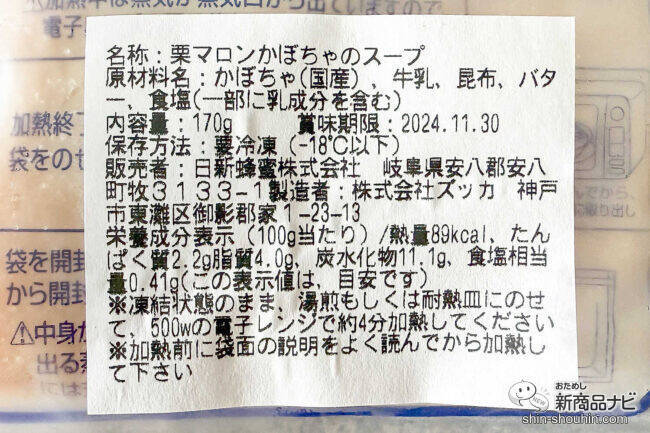 ※加熱中は蒸気が蒸気口から出ていますので
電子
名称：栗マロンかぼちゃのスープ
原材料名：かぼちゃ(国産)、牛乳、昆布、バタ
ー、食塩(一部に乳成分を含む)
内容量：170g 賞味期限：2024.11.30
保存方法：要冷凍（-18℃以下）
販売者：日新蜂蜜株式会社 岐阜県安八郡安八
町牧3133-1製造者：株式会社ズッカ 神戸
市東灘区御影郡家1-23-13
栄養成分表示（100g当たり）/熱量89kcal、たん
ぱく質2.2g脂質4.0g、炭水化物11.1g、食塩相当
量0.41g(この表示値は、目安です）
※凍結状態のまま、湯煎もしくは耐熱皿にのせ
て、500wの電子レンジで約4分加熱してください
※加熱前に袋面の説明をよく読んでから加熱し
て下さい
加熱終了
袋をのせ
んでから
に取り出し
袋を開封
から開封
⚠中身が
出る
おためし
新商品ナビ
shin-shouhin.com